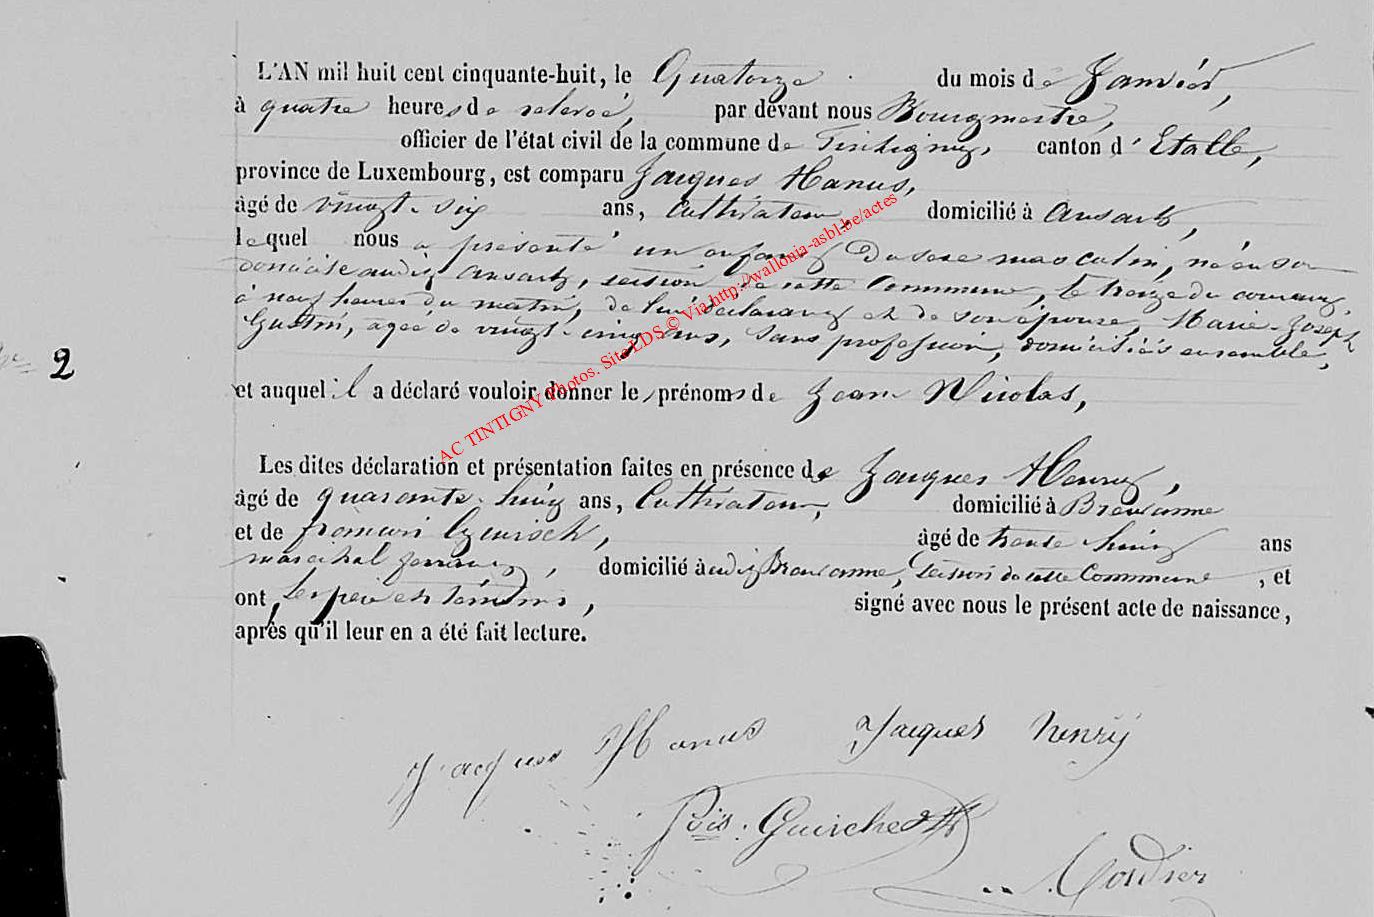 L'AN mil huit cent cinquante-huit, le Quatorze du mois de Janvier,
à quatre heures de relevée, par devant nous Bourgmestre,
officier de l'état civil de la commune de Tintigny, canton d'Etalle,
province de Luxembourg, est comparu Jacques Hanus,
âgé de vingt-six ans, Cultivateur, domicilié à Ansart,
lequel nous a présenté un enfant du sexe masculin, né en son
domicile audit Ansart, section de cette Commune, le treize du courant,
à neuf heures du matin, de lui déclarant et de son épouse, Marie-Joseph
Gustin, agée de vingt-cinq ans, sans profession, domiciliés ensemble,
N° 2
et auquel il a déclaré vouloir donner les prénoms de Jean Nicolas,
Les dites déclaration et présentation faites en présence de Jacques Henry,
âgé de quarante-huit ans, Cultivateur, domicilié à Breuvanne
et de françois Guirsch, âgé de trente huit ans
maréchal ferrant, domicilié audit Breuvanne, section de cette Commune, et
ont, les père et témoins, signé avec nous le présent acte de naissance,
après qu'il leur en a été fait lecture.
Jacques Hanus Jacques henry
fois. Guirche
AC TINTIGNY Photos. Site LDS © Via http://wallonia-asbl.be/actes